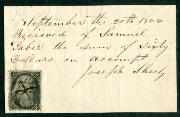 September the 20th 1864
Recieved of Samuel
Taber the Sum of Sixty
Dollars on Accompt
Joseph